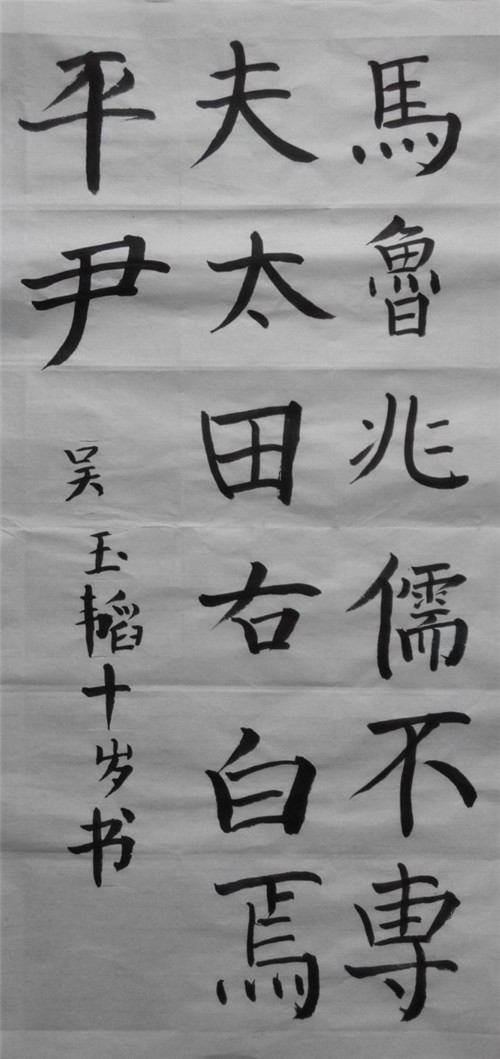 馬魯兆儒不専
夫太田右白焉
平尹
吴玉韬十岁书